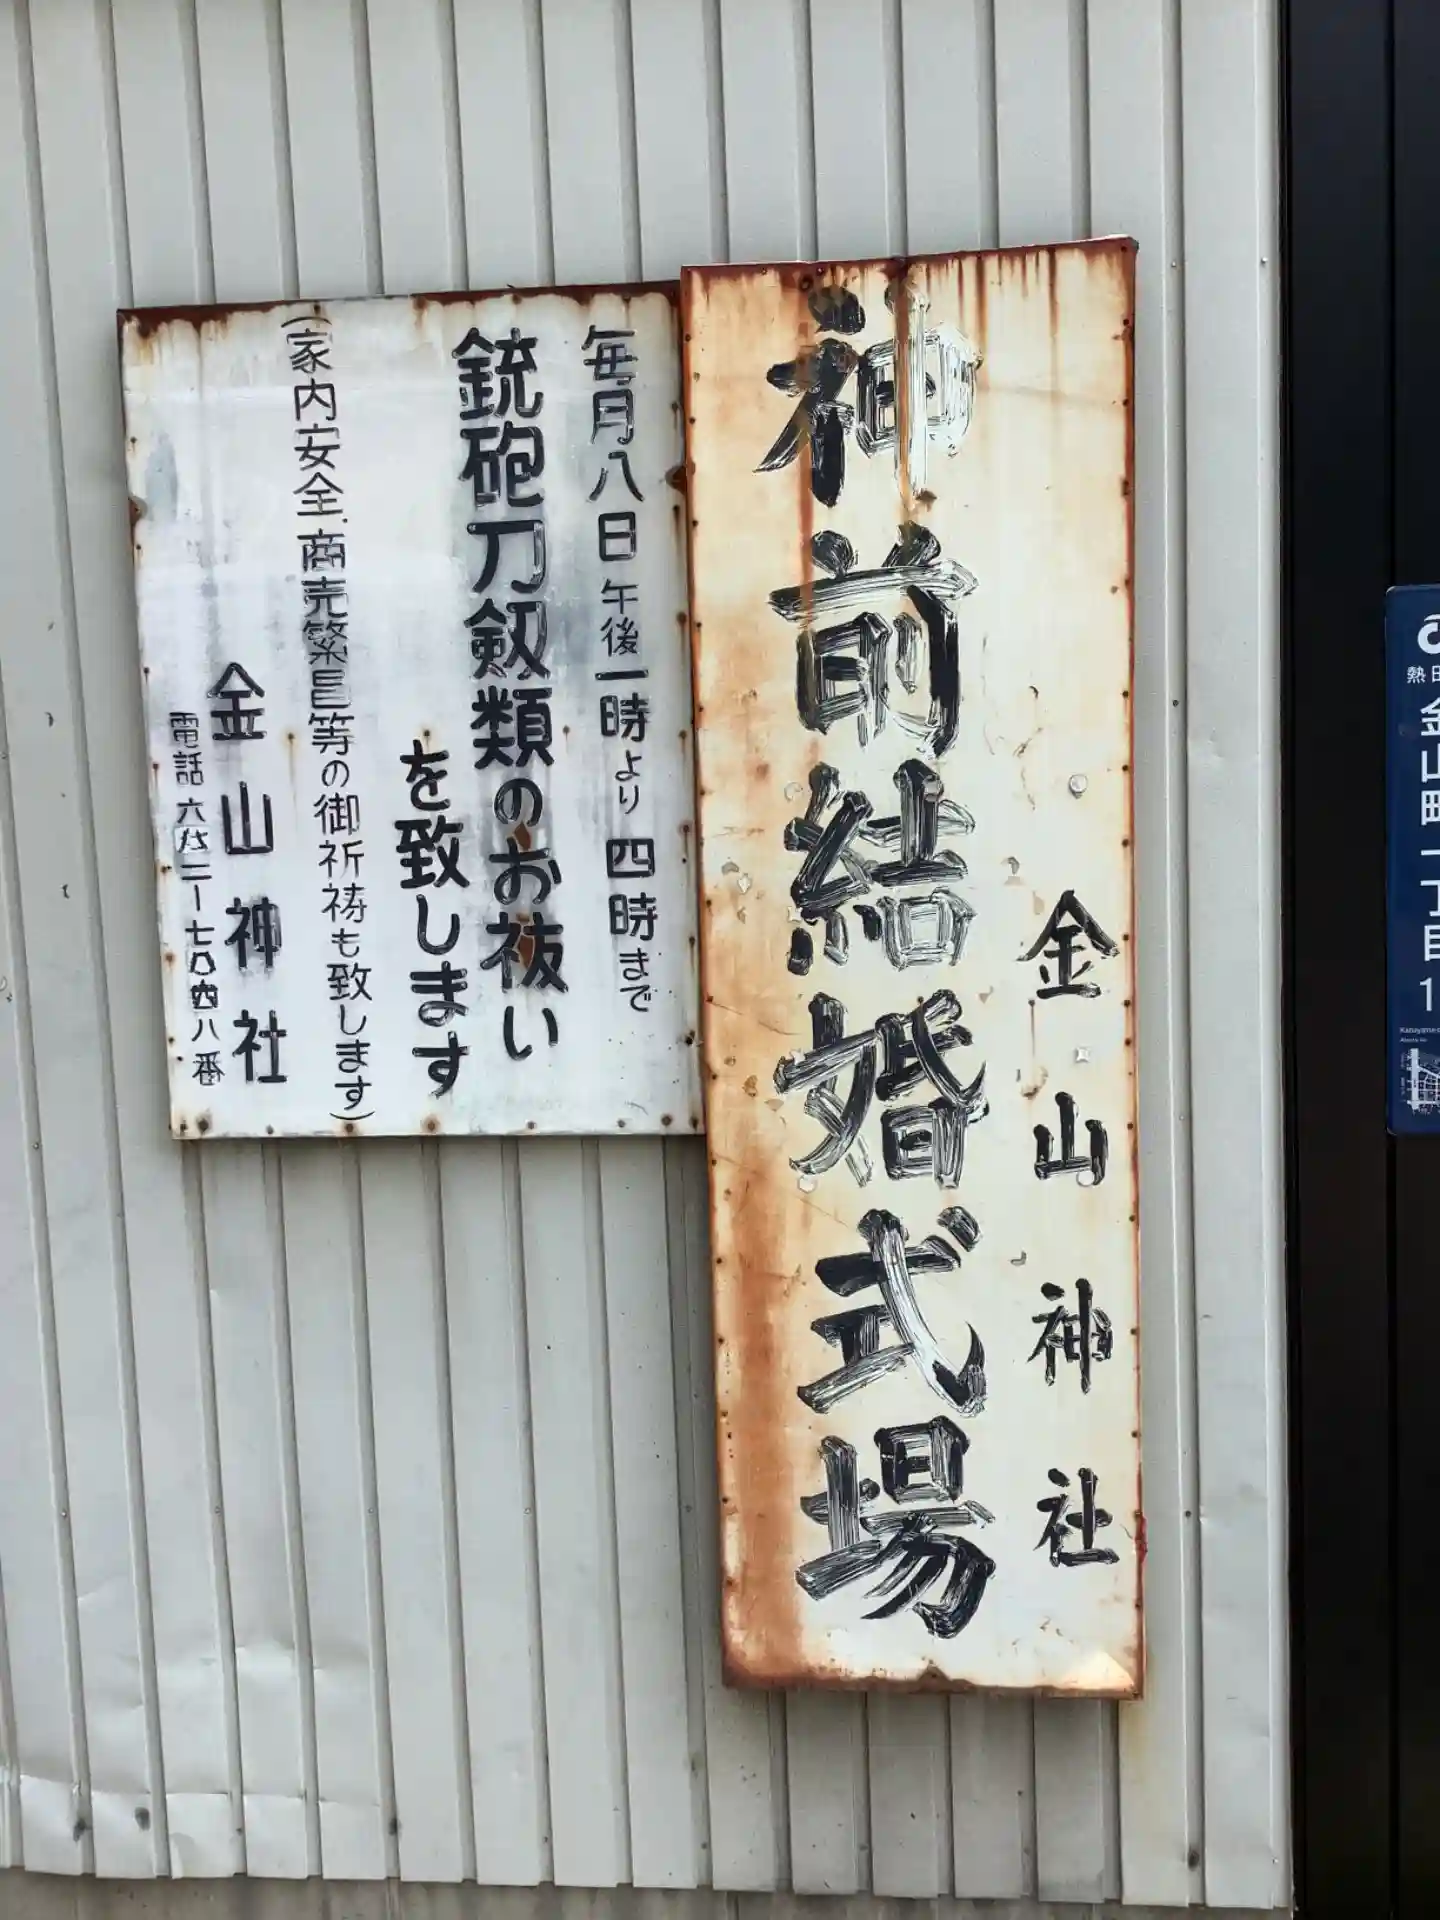 金山神社
神前結婚式場
毎月八日午後一時より四時まで
銃砲刀剱類のお祓い
を致します
(家内安全.商売繁昌等の御祈祷も致します)
金山神社
電話
八番
熱田
金山町一丁目
1